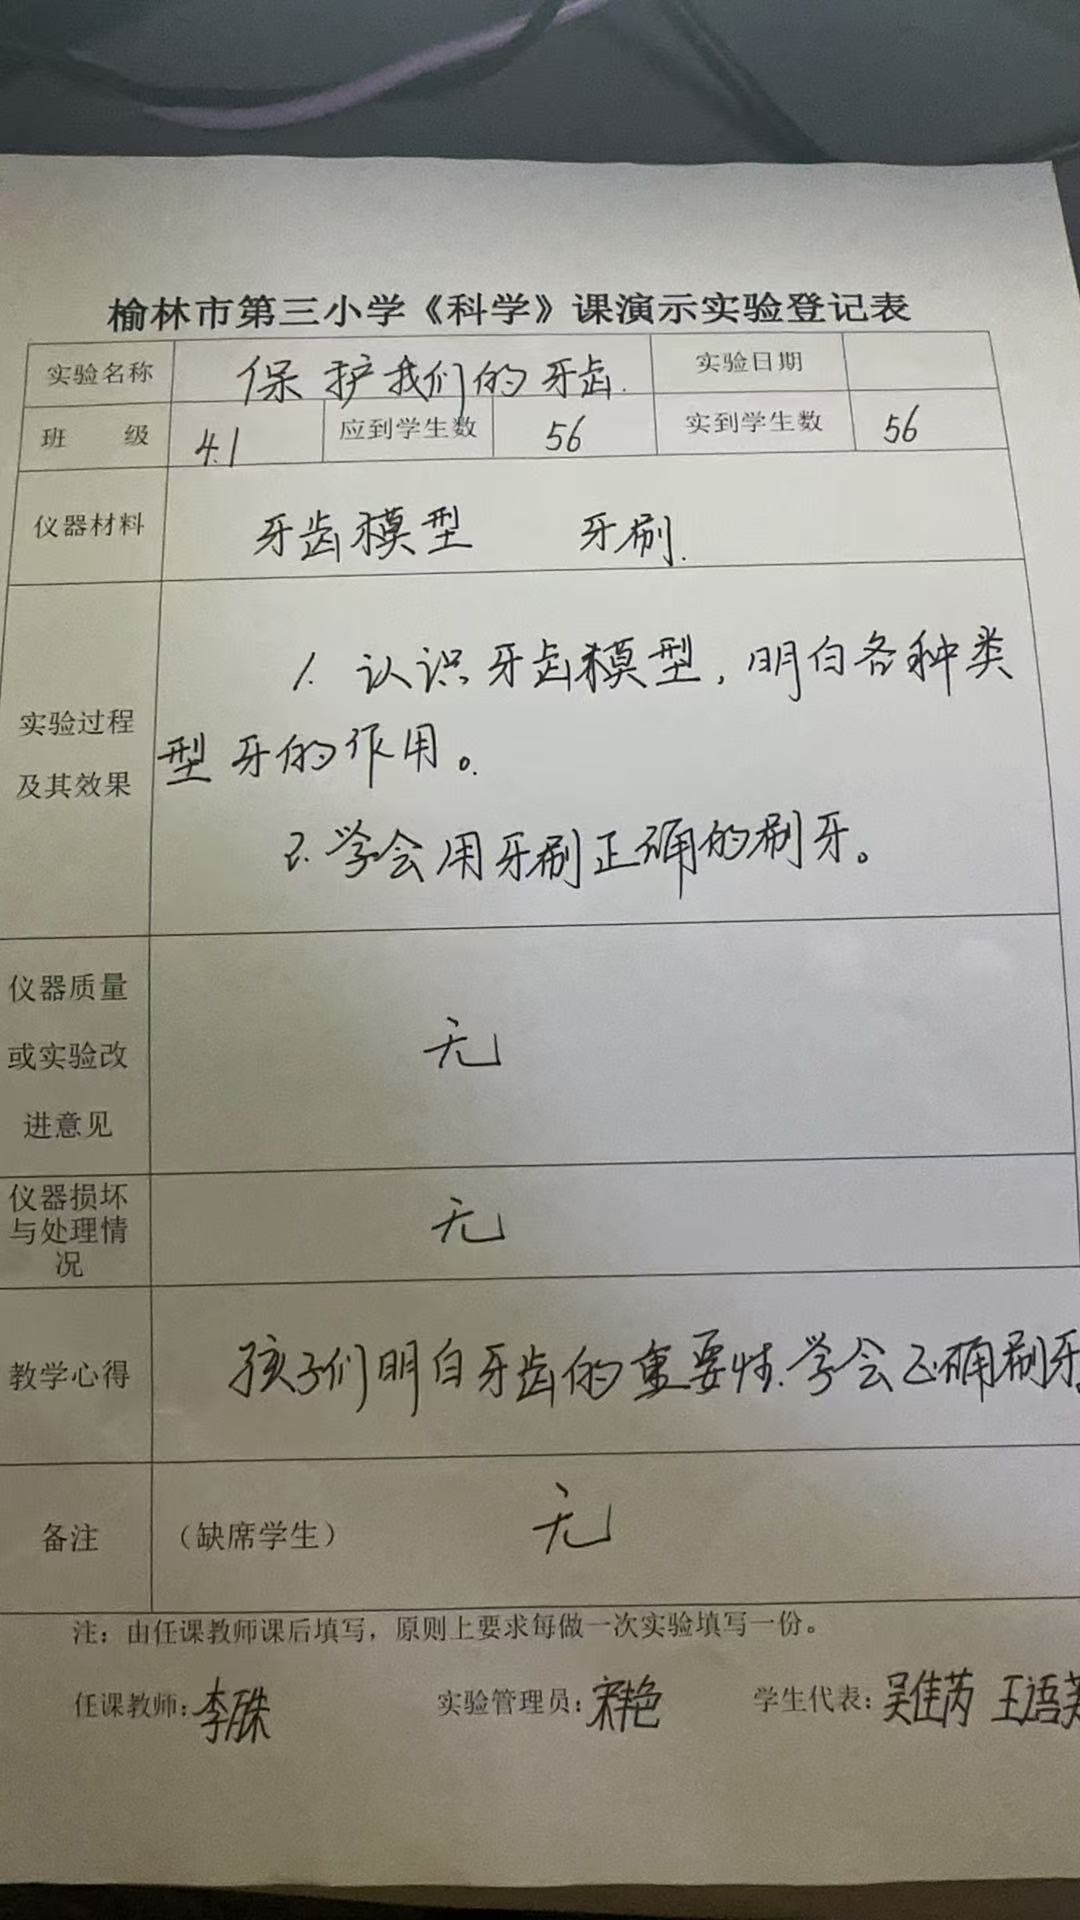 榆林市第三小学《科学》课演示实验登记表
实验名称 保护我们的牙齿. 实验日期
班 级 4.1 应到学生数 56 实到学生数 56
仪器材料 牙齿模型 牙刷.
实验过程及其效果
1. 认识牙齿模型，明白各种类
型牙的作用。
2. 学会用牙刷正确的刷牙。
仪器质量
或实验改
进意见
无
仪器损坏
与处理情
况
无
教学心得 孩子们明白牙齿的重要性.学会正确刷牙。
备注 （缺席学生） 无
注：由任课教师课后填写，原则上要求每做一次实验填写一份。
任课教师: 李 实验管理员: 宋艳 学生代表: 吴佳芮 王语